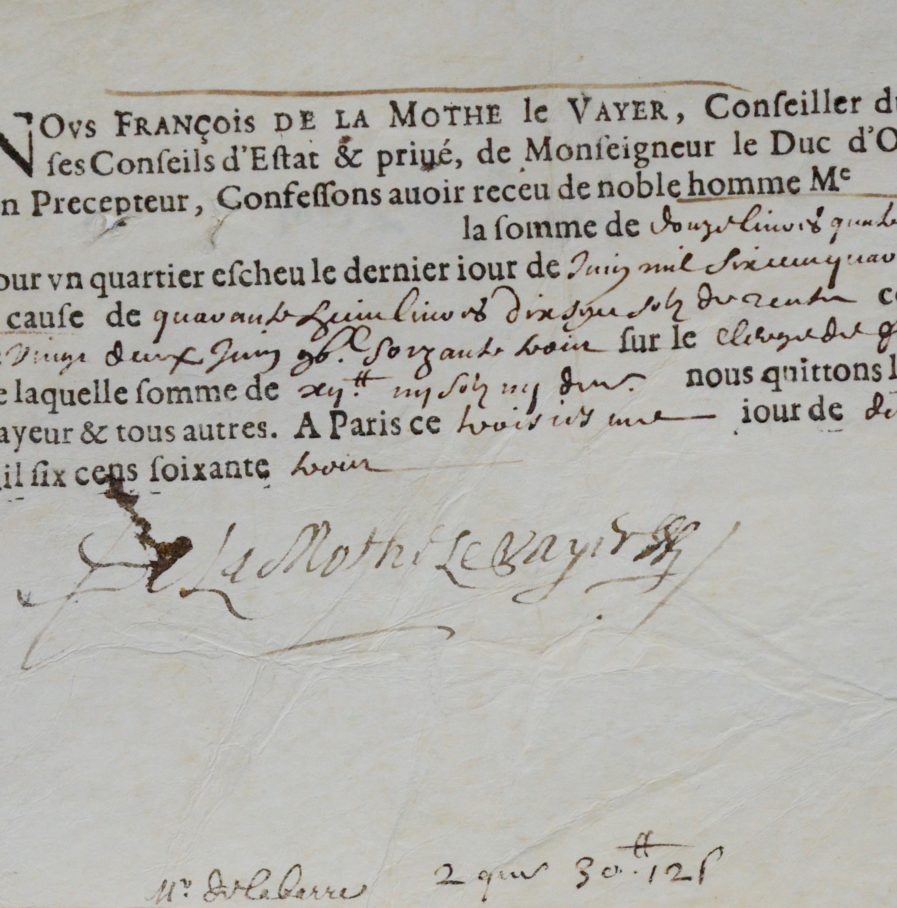 NOvs FRANÇois DE LA MOTHE le VAYER, Conſeiller d
ſes Conſeils d'Eſtat & priué, de Monſeigneur le Duc d'O
n Precepteur, Confeſſons auoir receu de noble homme Me
la ſomme de douze liures quat
our vn quartier eſcheu le dernier iour de Juin mil six cens
cauſe de quarante liures dix de rente c
deux Juin soixante trois sur le clergé de
e laquelle ſomme de xij.tt iiij iiij nous quittons l
ayeur & tous autres. A Paris ce iour de
il ſix cens ſoixante trois
De La Mothe Le Vayer
Mr. delabarre 2 30.tt 12 ſ